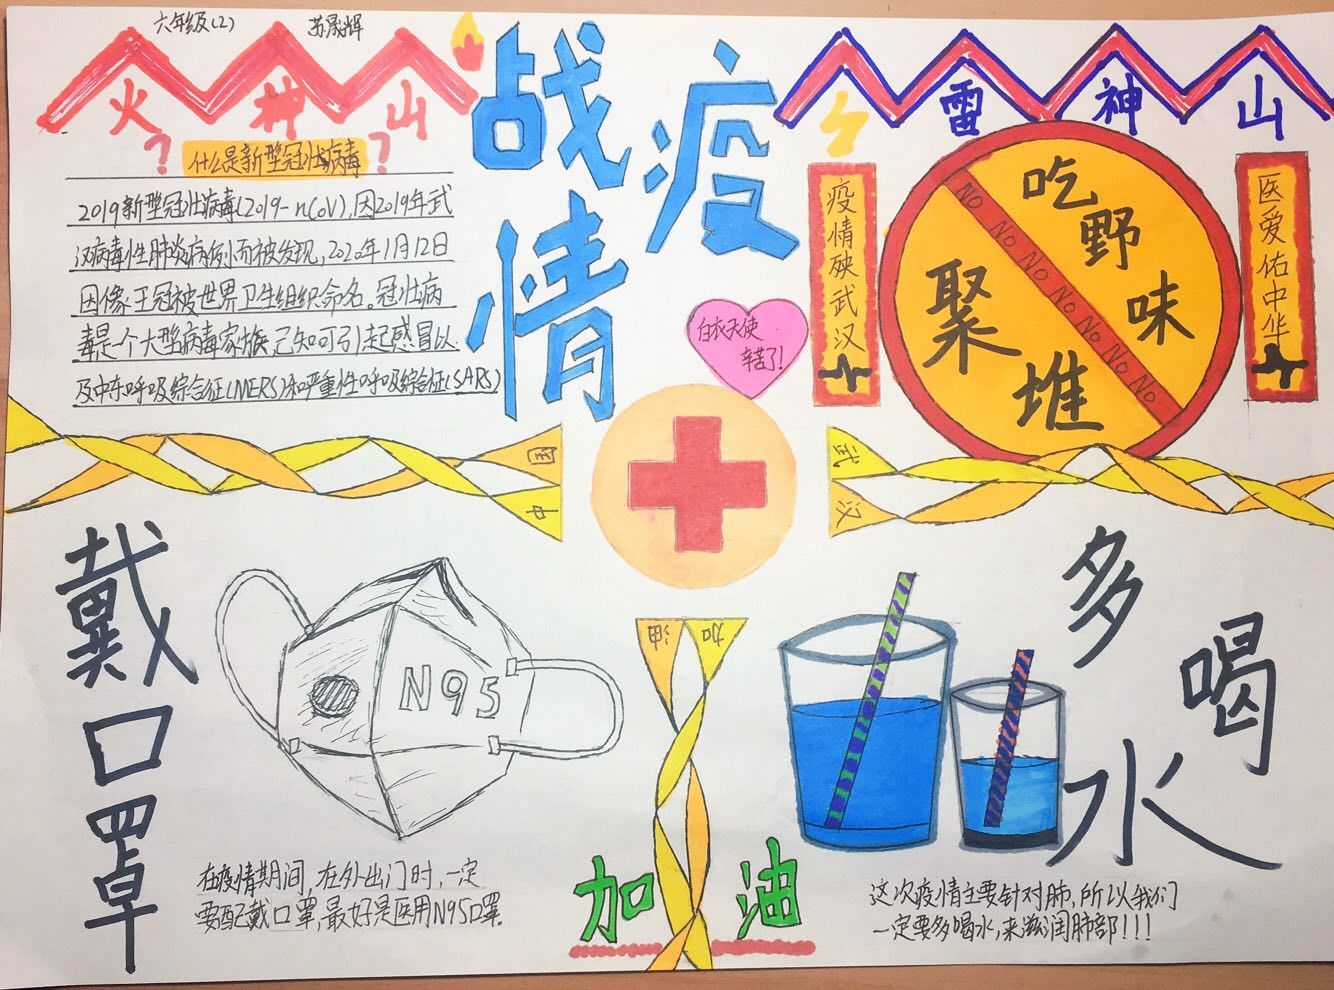 六年级(2) 苏晟辉
火神山
战疫情
雷神山
什么是新型冠壮病毒
??
2019新型冠壮病毒(2019-nCoV),因2019年武
汉病毒性肺炎病例而被发现,2020年1月12日
因像王冠被世界卫生组织命名。冠壮病
毒是个大型病毒家族,己知可引起感冒以
及中东呼吸综合征(MERS)和严重性呼吸综合征(SARS)
白衣天使
辛苦了!
疫情殃武汉
吃野味
聚堆
NO NO NO NO NO NO NO
医爱佑中华
中国
武汉
加油
戴口罩
N95
在疫情期间,在外出门时,一定
要配戴口罩,最好是医用N95口罩.
加油
多喝水
这次疫情主要针对肺,所以我们
一定要多喝水,来滋润肺部!!!